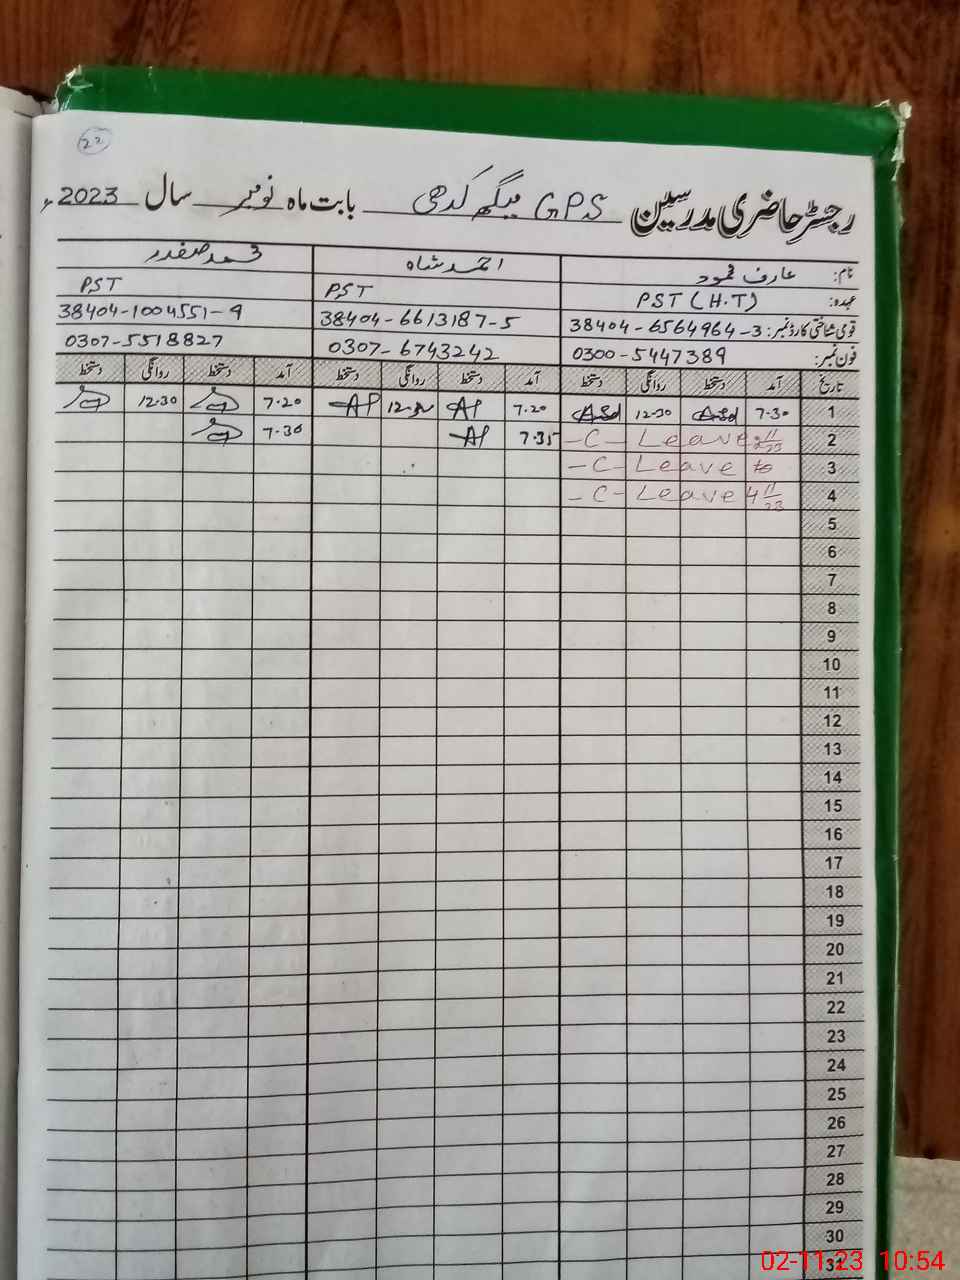 22
رجسٹر حاضری مدرسین GPS میگھ کدھی بابت ماہ نومبر سال 2023ء
نام: عارف محمود احمد شاہ محمد صفدر
عہدہ: PST (H.T) PST PST
قومی شناختی کارڈ نمبر: 38404-6564964-3 38404-6613187-5 38404-1004551-9
فون نمبر: 0300-5447389 0307-6743242 0307-5518827
تاریخ آمد دستخط روانگی دستخط آمد دستخط روانگی دستخط آمد دستخط روانگی دستخط
1 7.30 12.30 7.20 12.30 7.20 12.30
2 -C- Leave 2/11/23 7.35 7.30
3 -C- Leave to
4 -C- Leave 4/11/23
5
6
7
8
9
10
11
12
13
14
15
16
17
18
19
20
21
22
23
24
25
26
27
28
29
30
31
02-11-23 10:54